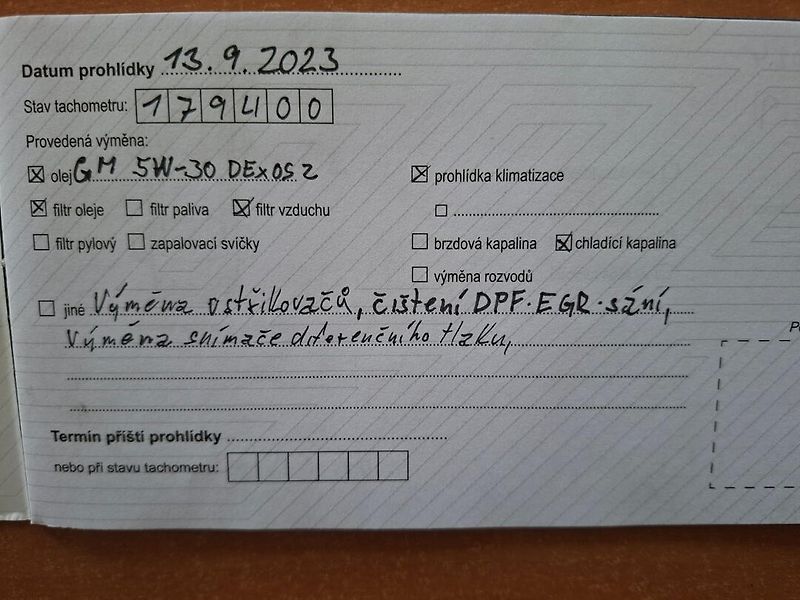 Datum prohlídky 13.9.2023
Stav tachometru: 179400
Provedená výměna:
olej GM 5W-30 DExOS 2
prohlídka klimatizace
filtr oleje filtr paliva filtr vzduchu
filtr pylový zapalovací svíčky
brzdová kapalina chladící kapalina
výměna rozvodů
jiné Výměna vstřikovačů, čištení DPF. EGR. sání,
Výměna snímače diferenčního tlaku,
Termín příští prohlídky
nebo při stavu tachometru: